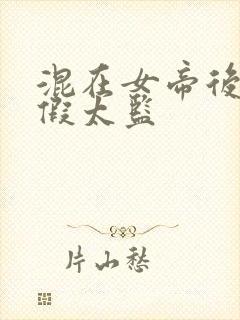 混在女帝後
假太監
片山愁